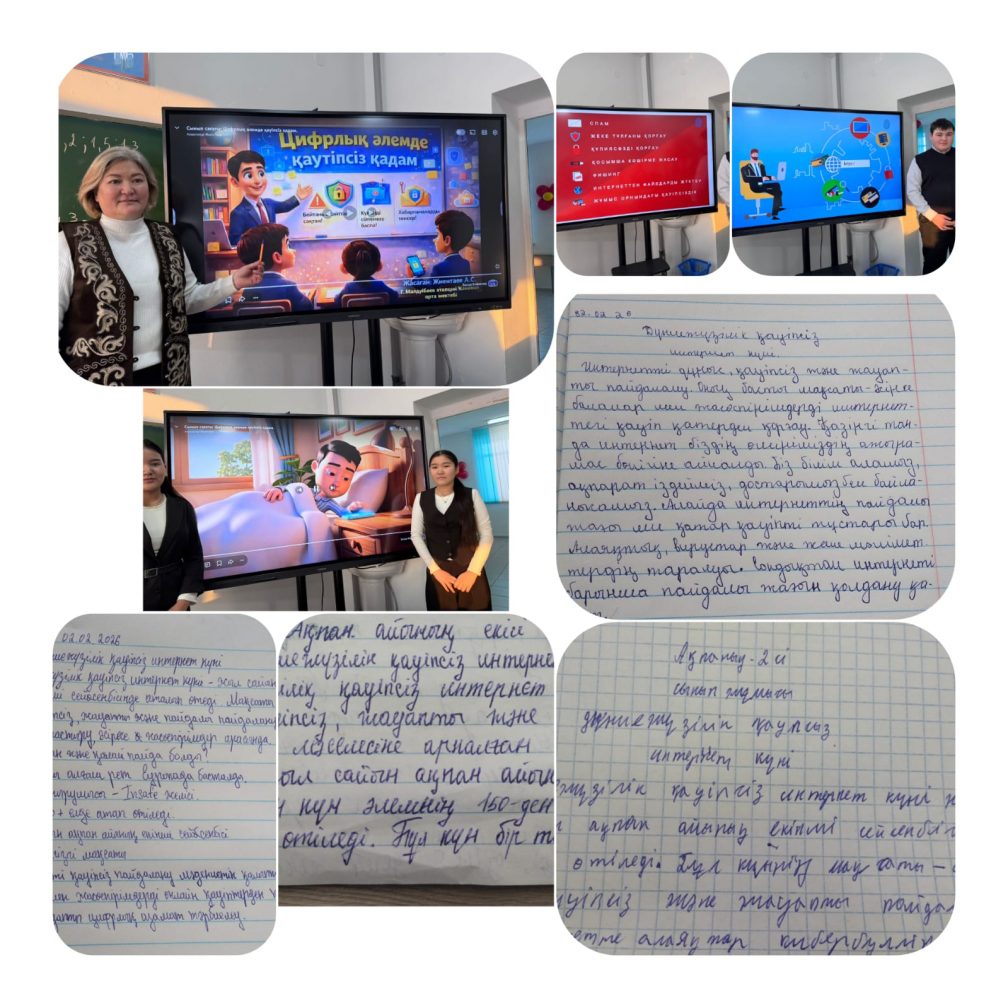 Сынып сағаты: Цифрлық әлемде қауіпсіз қадам.
Цифрлық әлемде
қаутіпсіз қадам
сақтан!
баспа!
Жасаған: Жиентаев А.С.
орта мектебі
СПАМ
ЖЕКЕ ТҰЛҒАНЫ ҚОРҒАУ
ҚҰПИЯСӨЗДІ ҚОРҒАУ
ҚОСЫМША КӨШІРМЕ ЖАСАУ
ФИШИНГ
ИНТЕРНЕТТЕН ФАЙЛДАРДЫ ЖҮКТЕУ
ЖҰМЫС ОРНЫНДАҒЫ ҚАУІПСІЗДІК
Сынып сағаты: Цифрлық әлемде қауіпсіз қадам
02.02 26
Дүниежүзілік қауіпсіз
интернет күні.
Интернетті дұрыс, қауіпсіз және жауап-
ты пайдалану. Оның басты мақсаты - әсіресе
балалар мен жасөспірімдерді интернет-
тегі қауіп қатерден қорғау. Қазіргі таң-
да интернет біздің өміріміздің ажыра-
мас бөлігіне айналды. Біз білім аламыз,
ақпарат іздейміз, достарымызбен байла-
нысамыз. Алайда интернеттің пайдалы
жағы мен қатар қауіпті тұстары бар.
Алаяқтық, вирустар және жеке мәлімет
тердің таралуы. Сондықтан интернетті
барынша пайдалы жағын қолдану қа-
02.02.2026
қауіпсіз интернет күні
қауіпсіз интернет күні - жыл сайын
сейсенбісінде аталып өтеді. Мақсаты
жауапты және пайдалы пайдалану
әсіресе жасөспірімдер арасында
және қалай пайда болды?
алғаш рет Еуропада басталды.
- Insafe желісі.
елде атап өтіледі.
ақпан айының екінші сейсенбісі
мақсаты
қауіпсіз пайдалану мәдениетін
жасөспірімдерді онлайн қауіптерден
цифрлық азамат тәрбиелеу.
Ақпан айының екісі
қауіпсіз интерне
қауіпсіз интернет
жауапты және
мәселесіне арналған
сайын ақпан айын
күн әлемнің 150-ден
өтіледі. Бұл күн бір
Ақпаның - 2 сі
сынып жұмысы
дүниежүзілік қауіпсыз
интернет күні
қауіпсіз интернет күні
ақпан айының екінші сейсенбі
өтіледі. Бұл күннің мақсаты -
және жауапты пайда
алаяқтар кибербуллин